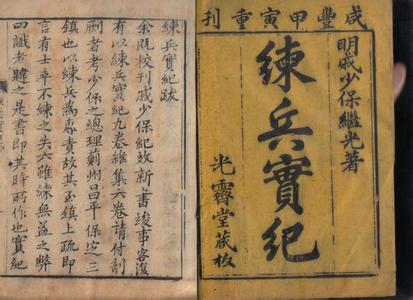 咸豐甲寅重刊
明戚少保繼光著
練兵實紀
光霽堂藏板
練兵實紀跋
余既校刊戚少保紀效新書竣事客復
有以練兵實紀九卷雜集六卷請付剞
劂者考少保之總理薊州昌平保定三
鎮也以練兵為專責故其至鎮上疏即
言有士卒不練之失六雖練無益之弊
四識者韙之是書即其時所作也實紀